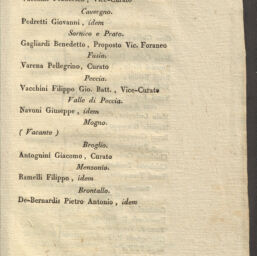 Vice-Curato
Cavergno.
Pedretti Giovanni, idem
Sornico e Prato.
Gagliardi Benedetto, Proposto Vic. Foraneo
Fusio.
Varena Pellegrino, Curato
Peccia.
Vacchini Filippo Gio. Batt., Vice-Curato
Valle di Peccia.
Navoni Giuseppe, idem
Mogno.
( Vacante )
Broglio.
Antognini Giacomo, Curato
Mensonio.
Ramelli Filippo, idem
Brontallo.
De-Bernardis Pietro Antonio, idem